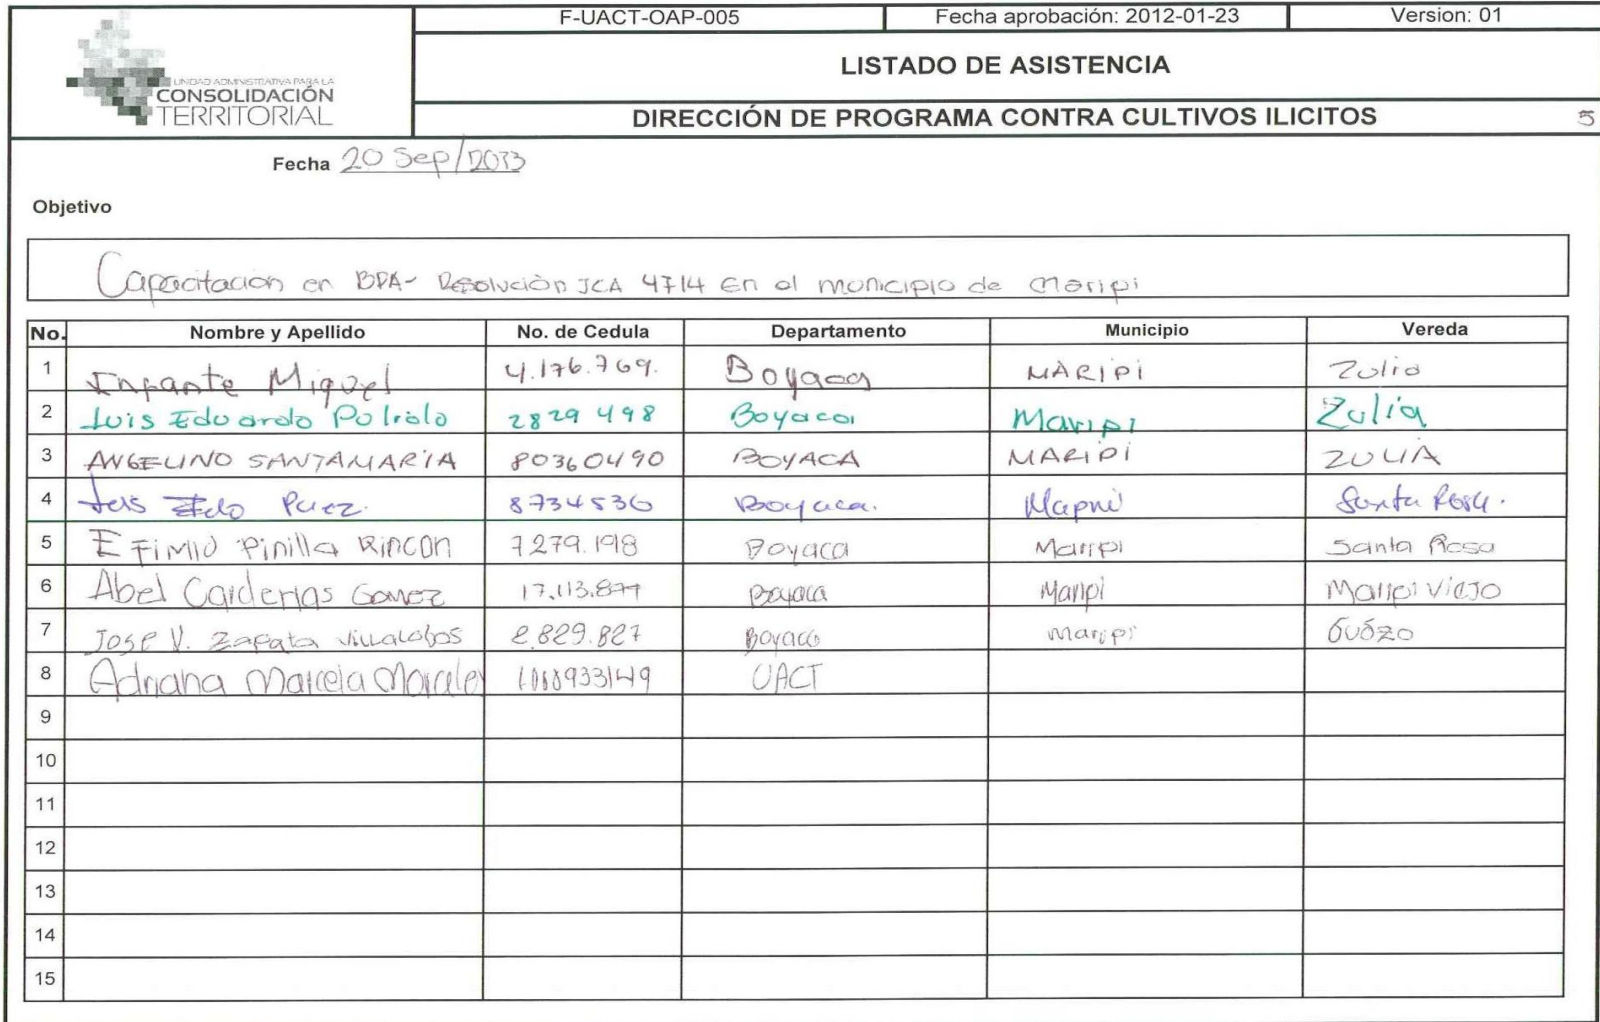 F-UACT-OAP-005 Fecha aprobación: 2012-01-23 Version: 01
UNIDAD ADMINISTRATIVA PARA LA
CONSOLIDACIÓN
TERRITORIAL
LISTADO DE ASISTENCIA
DIRECCIÓN DE PROGRAMA CONTRA CULTIVOS ILICITOS 5
Fecha 20 Sep/2013
Objetivo
Capacitación en BPA- Resolución ICA 4714 En el municipio de Maripi
No. Nombre y Apellido No. de Cedula Departamento Municipio Vereda
1 Infante Miguel 4.176.769. Boyaca MARIPI Zulia
2 Luis Eduardo Pulido 2829 498 Boyaca Maripi Zulia
3 ANGELINO SANTAMARIA 80360490 BOYACA MARIPI ZULIA
4 Paez. 8734536 Boyaca. Santa Rosa.
5 EFIMIO Pinilla RINCON 7279.198 Boyaca Maripi Santa Rosa
6 Abel Cardenas Gomez 17.113.877 Boyaca Maripi Maripi Viejo
7 Jose V. Zapata Villalobos 2.829.827 Boyaca Maripi Guazo
8 Adriana Marcela Morales UACT
9
10
11
12
13
14
15